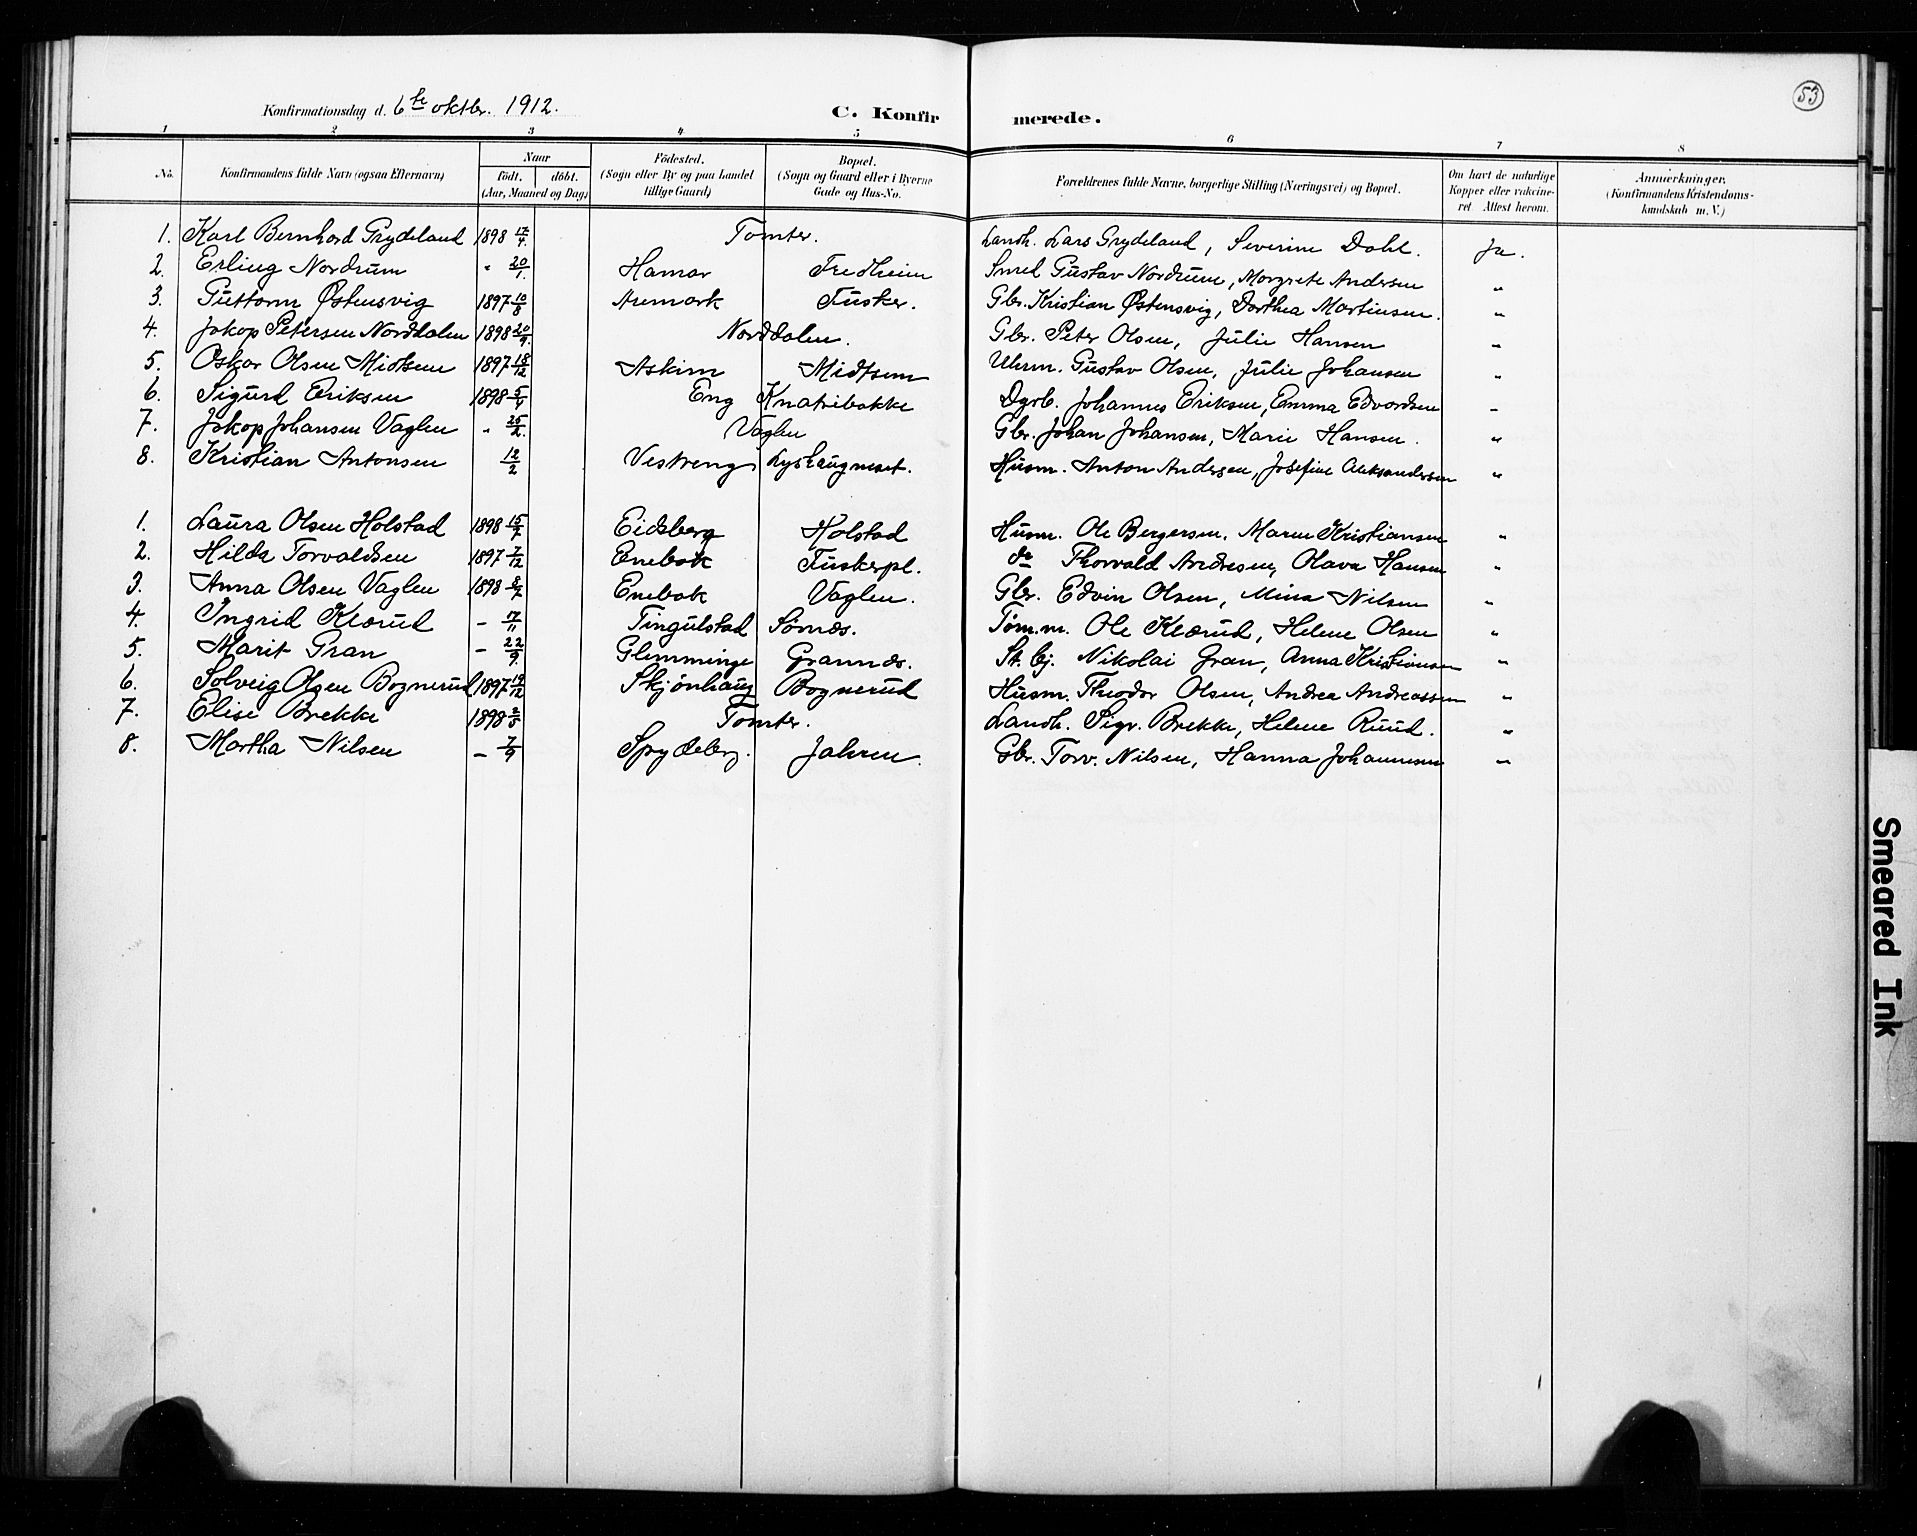 Konfirmationsdag d. 6te oktbr. 1912. C. Konfirmerede. 53
1 2 3 4 5 6 7 8
No. Konfirmandens fulde Navn (ogsaa Efternavn) Naar födt. döbt. (Aar, Maaned og Dag) Födested. (Sogn eller By og paa Landet tillige Gaard) Bopæl. (Sogn og Gaard eller i Byerne Gade og Hus-No. Forældrenes fulde Navne, borgerlige Stilling (Næringsvei) og Bopæl. Om havt de naturlige Kopper eller vakcineret. Attest herom. Anmerkninger, (Konfirmandens Kristendomskundskab m. V.)
1. Karl Bernhard Grydeland 1898 17/4. Tomter. Landh. Lars Grydeland, Severine Dahl. Ja.
2. Erling Nordrum " 20/1. Hamar Fredheim Smed Gustav Nordrum, Margrete Andersen "
3. Guttorm Østensvig 1897 10/8 Aremark Fusker. Gbr. Kristian Østensvig, Dorthea Martinsen. "
4. Jakop Petersen Norddalen 1898 20/9. Norddalen. Gbr. Peter Olsen, Julie Hansen "
5. Oskar Olsen Midtsem 1897 18/12 Askim Midtsem Uhrm. Gustav Olsen, Julie Johansen "
6. Sigurd Eriksen 1898 5/4 Eng Knatribakke Dgrb. Johannes Eriksen, Emma Edvardsen "
7. Jakop Johansen Vaglen " 25/2. Vaglen Gbr. Johan Johansen, Marie Hansen. "
8. Kristian Antonsen 12/2 Vestreng Lyshaugneset. Husm. Anton Andersen, Josefine Aleksandersen "
1. Laura Olsen Holstad 1898 15/7 Eidsberg Holstad Husm. Ole Bergersen, Maren Kristiansen "
2. Hilda Torvaldsen 1897 7/12 Enebak Fuskerpl. do Thorvald Andresen, Olava Hansen "
3. Anna Olsen Vaglen 1898 8/7 Enebak Vaglen. Gbr. Edvin Olsen, Mina Nilsen "
4. Ingrid Klærud - 17/11 Tingulstad Sømds. Tøm.m. Ole Klærud, Helene Olsen "
5. Marit Gran - 22/9. Glemminge Grannds. St. bj. Nikolai Gran, Anna Kristiansen "
6. Solveig Olsen Bognerud 1897 19/12 Skjønhaug Bognerud Husm. Theodor Olsen, Andrea Andreassen "
7. Elise Brekke 1898 2/5 Tomter. Landh. Sigv. Brekke, Helene Ruud. "
8. Martha Nilsen - 7/9 Spydeberg. Jahren. Gbr. Torv. Nilsen, Hanna Johannesen "
Smeared Ink